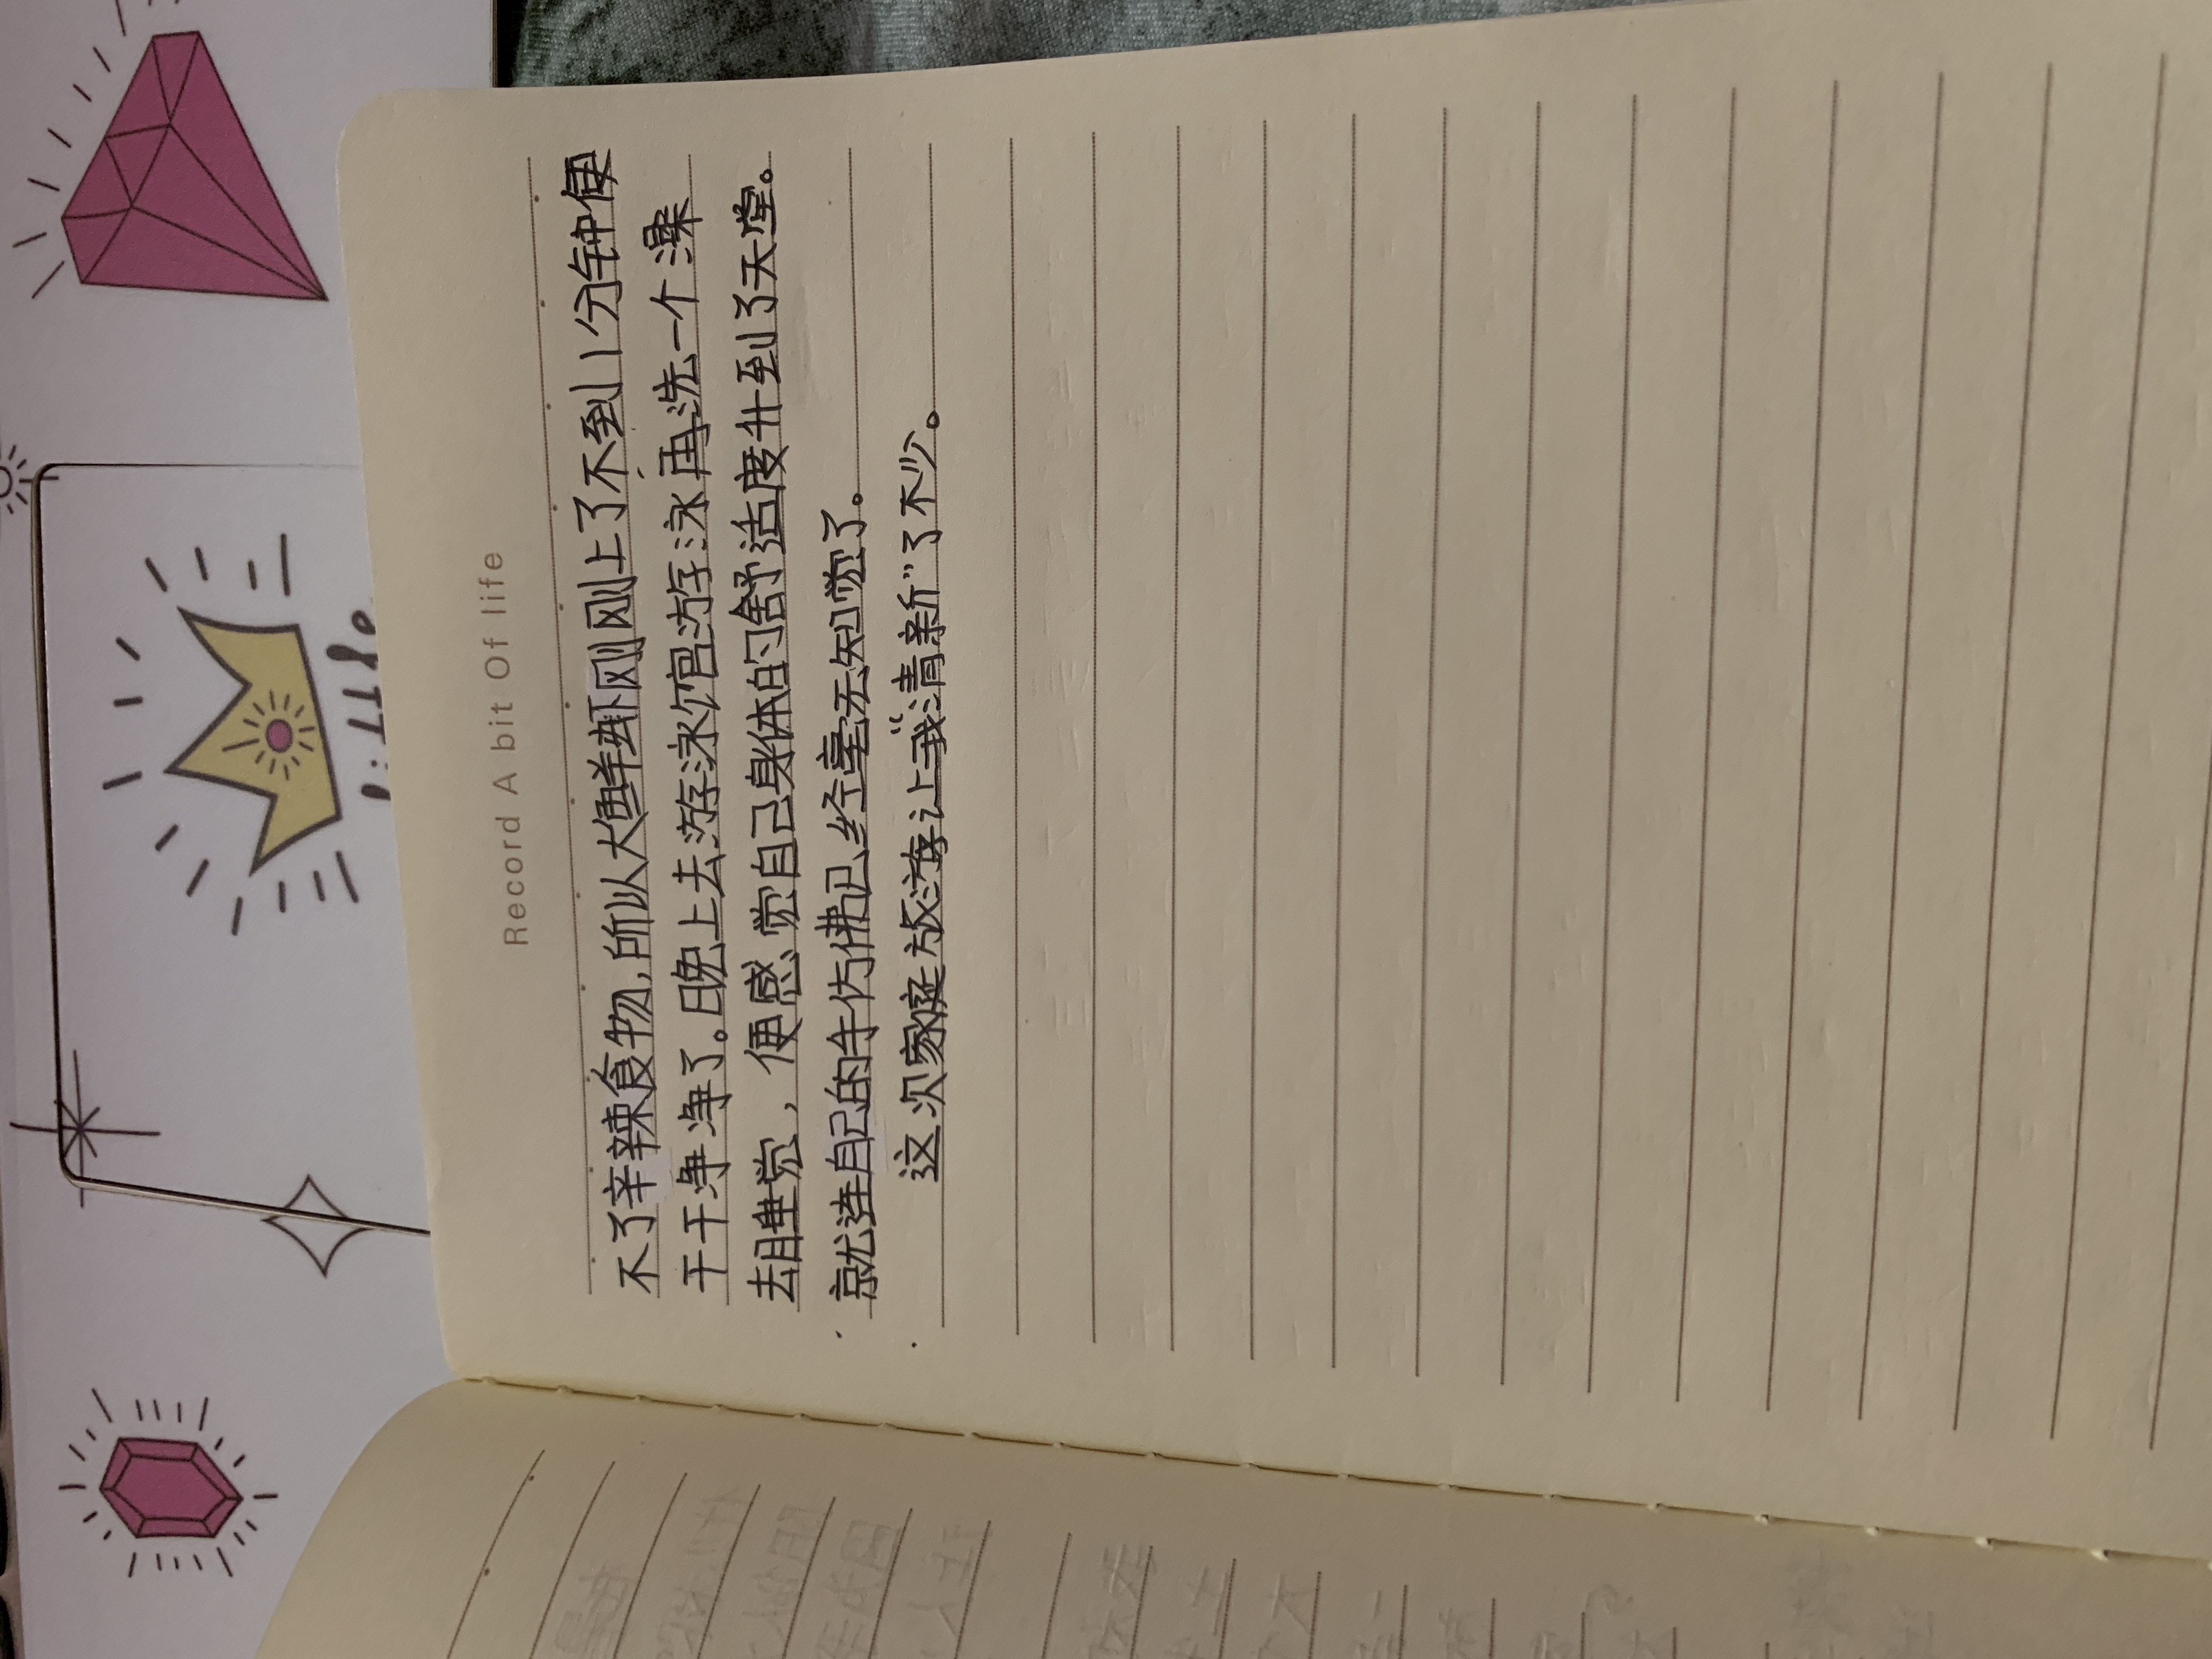 Record A bit Of life
不了辛辣食物,所以大闸蟹刚刚上了不到1分钟便
干干净净了。晚上去游泳馆游泳再洗一个澡
去睡觉，便感觉自己身体的舒适度升到了天堂。
就连自己的手仿佛已经毫无知觉了。
这次家庭旅游让我“清新”了不少。